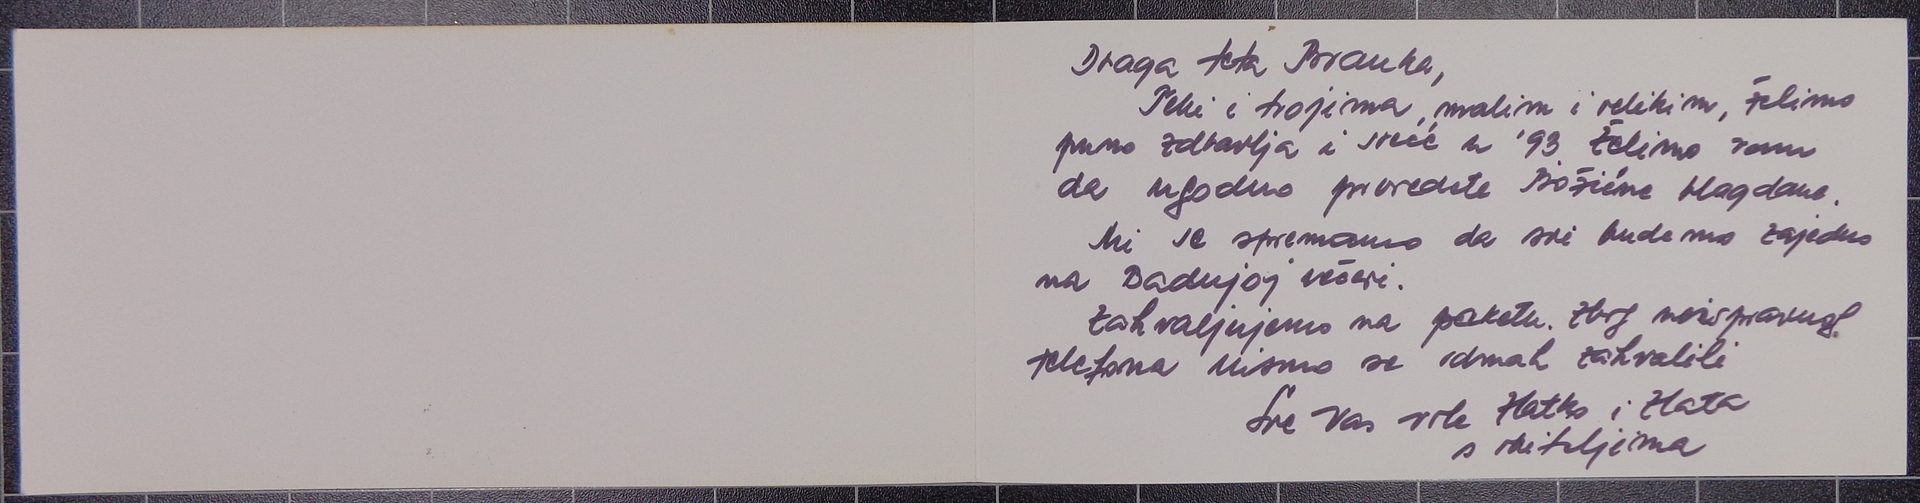 Draga teta Branka,
Tebi i tvojima, malim i velikim, želimo
puno zdravlja i sreće u '93 Želimo vam
da ugodno provedete Božićne blagdane.
Mi se spremamo da svi budemo zajedno
na Badnjoj večeri.
Zahvaljujemo na paketu. Zbog neispravnog
telefona nismo se odmah zahvalili
Sve Vas vole Zlatko i Zlata
s obiteljima